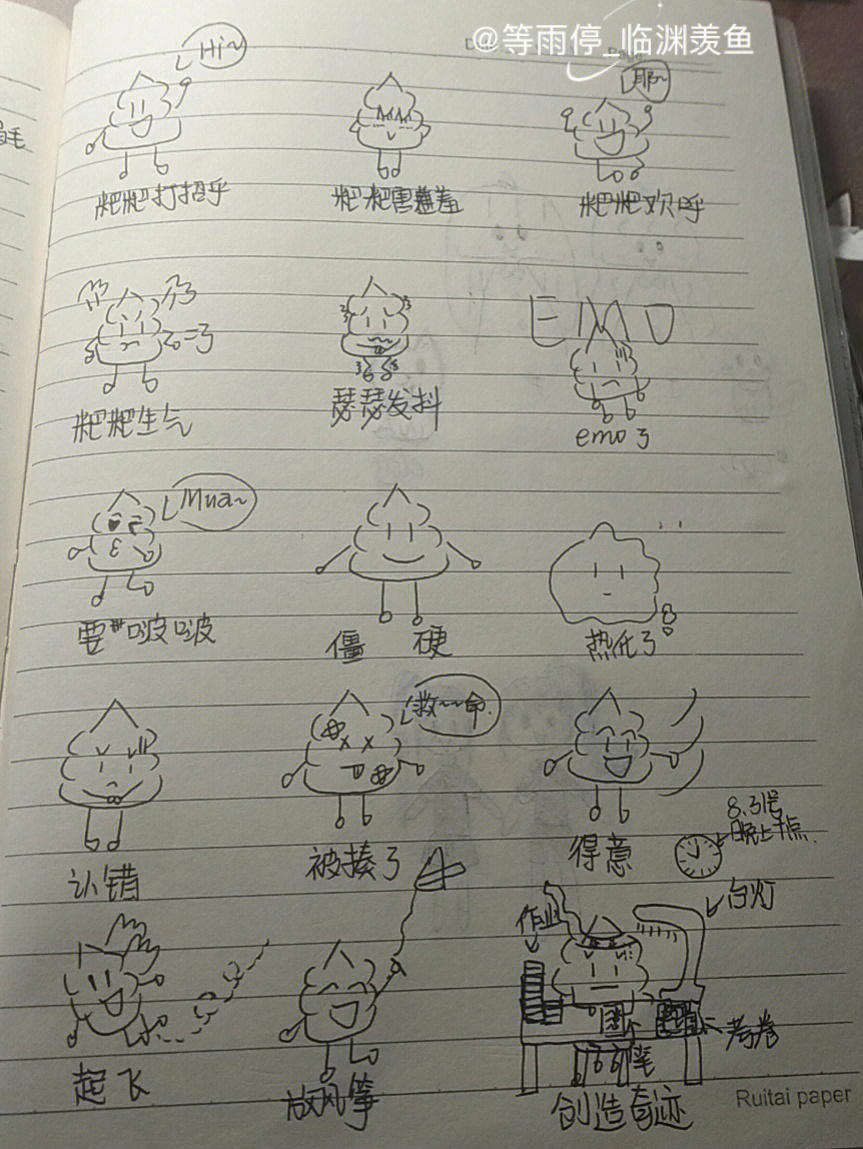 @等雨停_临渊羡鱼
Hi~
耶~
粑粑打招呼
粑粑害羞羞
粑粑欢呼
EMO
粑粑生气
瑟瑟发抖
emo了
Mua~
要啵啵
僵硬
热化了
救~~命.
认错
被揍了
得意
8.31号
晚上十点.
作业
台灯
考卷
笔
起飞
放风筝
创造奇迹
Ruitai paper